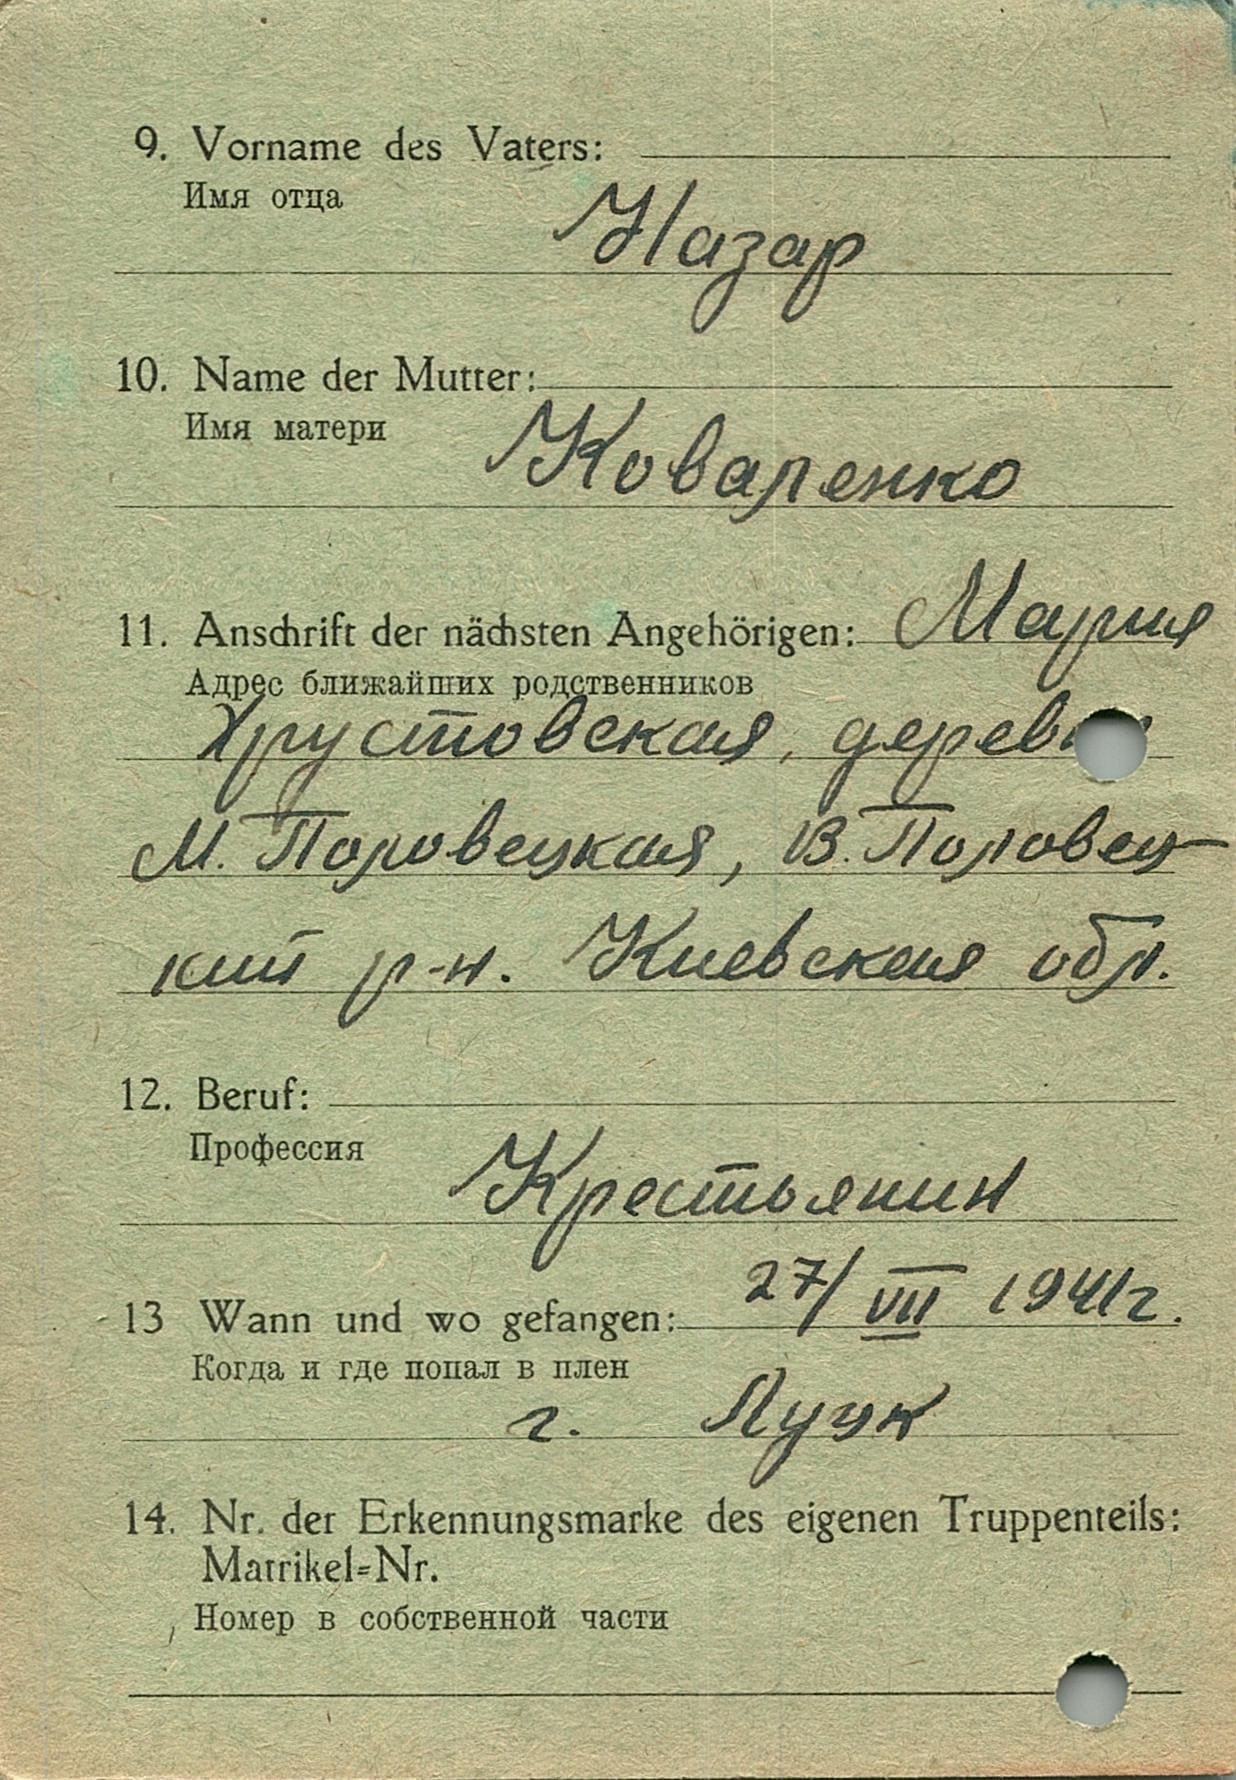 9. Vorname des Vaters:
Имя отца
Назар
10. Name der Mutter:
Имя матери
Коваленко
11. Anschrift der nächsten Angehörigen: Мария
Адрес ближайших родственников
Хрустовская, дерев
М. Половецкая, В. Половец-
кий р-н. Киевская обл.
12. Beruf:
Профессия
Крестьянин
13 Wann und wo gefangen: 27/VII 1941г.
Когда и где попал в плен
г. Луцк
14. Nr. der Erkennungsmarke des eigenen Truppenteils:
Matrikel-Nr.
Номер в собственной части